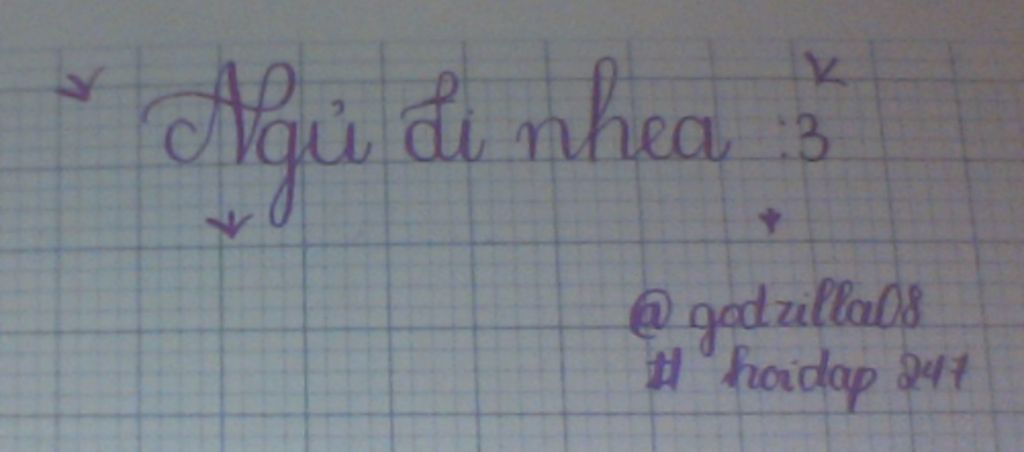 Ngủ đi nhea :3
@ godzilla08
# hoidap 247